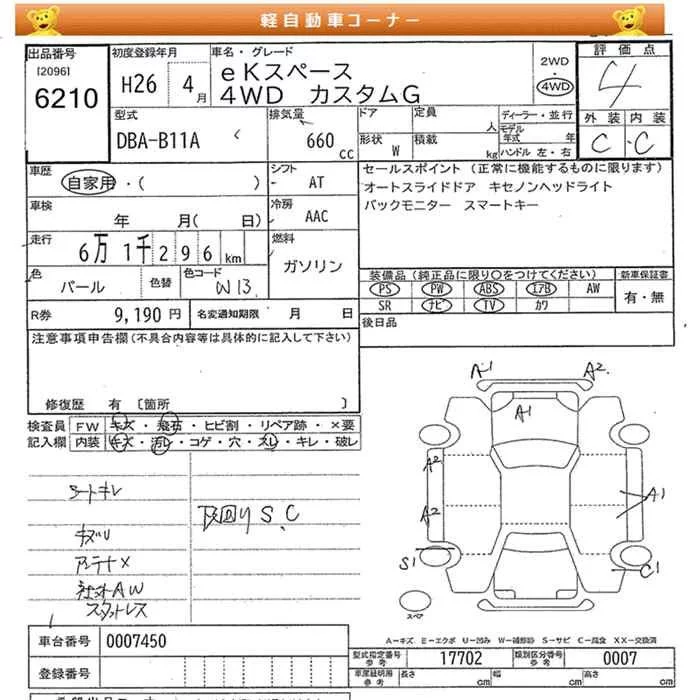 軽自動車コーナー
出品番号
[2096]
6210
初度登録年月
H26 4月
車名・グレード
eKスペース
4WD カスタムG
2WD
・
4WD
評価点
4
外装 内装
C・C
型式
DBA-B11A
排気量
660 cc
ドア
定員
人
形状 W
積載
kg
ディーラー・並行
モデル年式 年
ハンドル 左・右
車歴
自家用・( )
シフト
AT
セールスポイント (正常に機能するものに限ります)
オートスライドドア キセノンヘッドライト
バックモニター スマートキー
車検
年 月( 日)
冷房
AAC
走行
6万1千296 km
燃料
ガソリン
色
パール
色替
色コード
W13
装備品 (純正品に限り○をつけてください)
PS PW ABS エアB AW
SR ナビ TV カワ
新車保証書
有・無
R券
9,190 円
名変通知期限 月 日
後日品
注意事項申告欄 (不具合内容等は具体的に記入して下さい)
修復歴 有 [箇所 ]
検査員
記入欄
FW キズ・飛石・ヒビ割・リペア跡・×要
内装 キズ・汚レ・コゲ・穴・スレ・キレ・破レ
シートキレ
キズU
アンテナX
社外AW
スタットレス
下回りS.C
A1
A2
A1
A2
A2
A1
S1
C1
スペア
A-キズ E-エクボ U-凹み W-補修跡 S-サビ C-腐食 XX-交換済
車台番号 0007450
登録番号
型式指定番号
参考
17702
類別区分番号
参考
0007
車庫証明用
参考
長さ cm
幅 cm
高さ cm